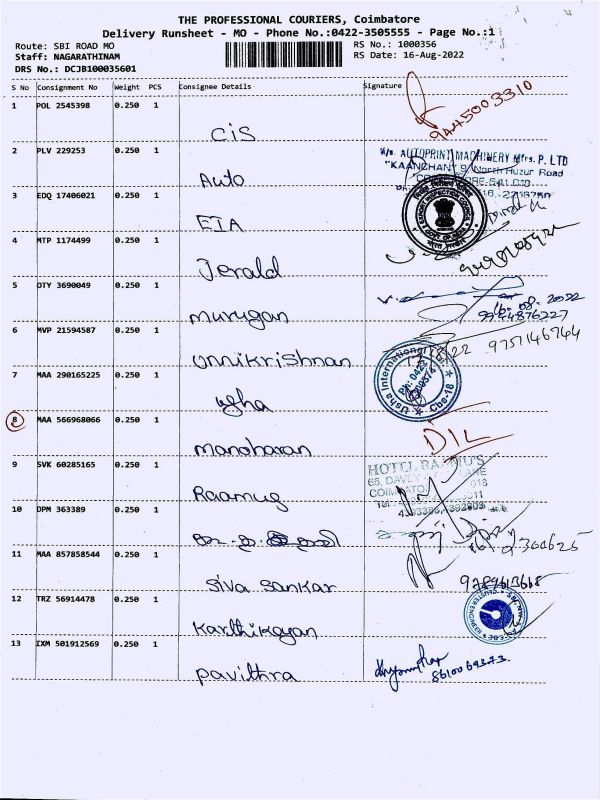 THE PROFESSIONAL COURIERS, Coimbatore
Delivery Runsheet - MO - Phone No.:0422-3505555 - Page No.:1
Route: SBI ROAD MO
RS No.: 1000356
Staff: NAGARATHINAM
RS Date: 16-Aug-2022
DRS No.: DCJB100035601
S No Consignment No Weight PCS Consignee Details Signature
1 POL 2545398 0.250 1
9445003310
CiS
2 PLV 229253 0.250 1
AUTOPRINT MACHINERY Mfrs. P. LTD
"KAANCHAN" 9, North Huzur Road
Auto
3 EDQ 17406021 0.250 1
EIA
4 MTP 1174499 0.250 1
Jerald
5 OTY 3690049 0.250 1
16.08.2022
9944876227
murugan
6 MVP 21594587 0.250 1
9757146744
unnikrishnan
7 MAA 290165225 0.250 1
Usha International
Ph: 0422
Cbe-18
usha
8 MAA 566968066 0.250 1
D/L
manoharan
9 SVK 60285165 0.250 1
HOTEL
65, DAVEY LANE
Raamus
10 DPM 363389 0.250 1
11 MAA 857858544 0.250 1
9789613668
Siva Sankar
12 TRZ 56914478 0.250 1
Karthikayan
13 IXM 501912569 0.250 1
8610069373
Pavithra